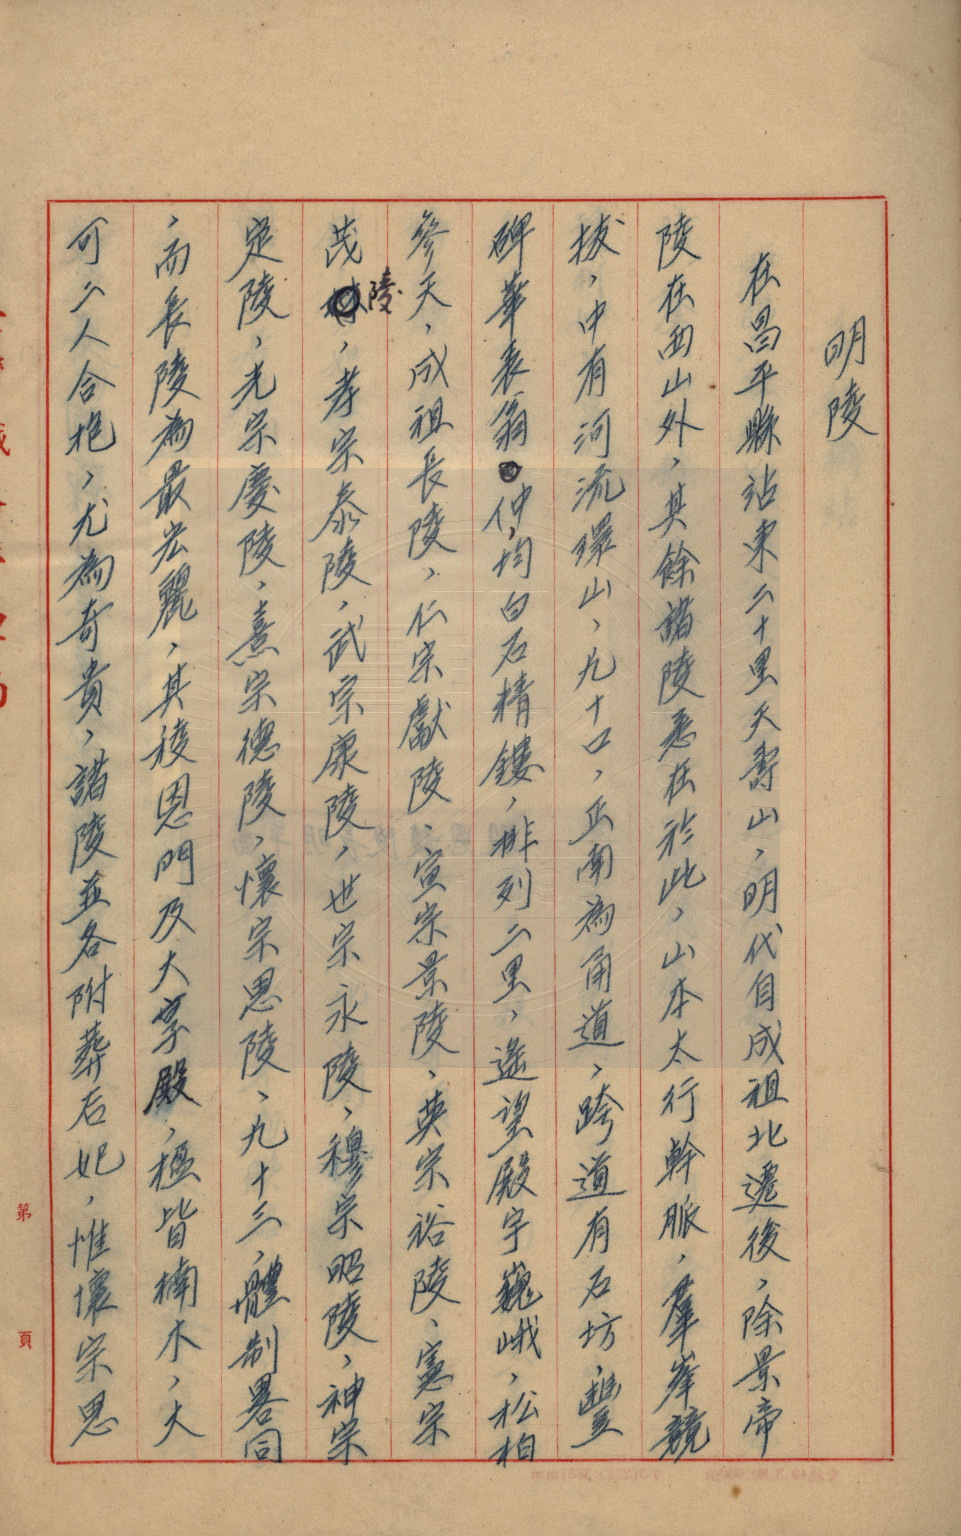 明陵
在昌平縣站東二十里天壽山，明代自成祖北遷後，除景帝
陵在西山外，其餘諸陵悉在於此，山本太行幹脈，羣峯競
拔，中有河流環山，凡十口，正南為甬道，跨道有石坊，豐
碑華表翁仲，均白石精鏤，排列二里，遙望殿宇巍峨，松柏
參天，成祖長陵，仁宗獻陵，宣宗景陵，英宗裕陵，憲宗
茂陵，孝宗泰陵，武宗康陵，世宗永陵，穆宗昭陵，神宗
定陵，光宗慶陵，熹宗德陵，懷宗思陵，凡十三，體制畧同
，而長陵為最宏麗，其稜恩門及大享殿，楹皆楠木，大
可二人合抱，尤為奇貴，諸陵並各附葬后妃，惟懷宗思
第 頁